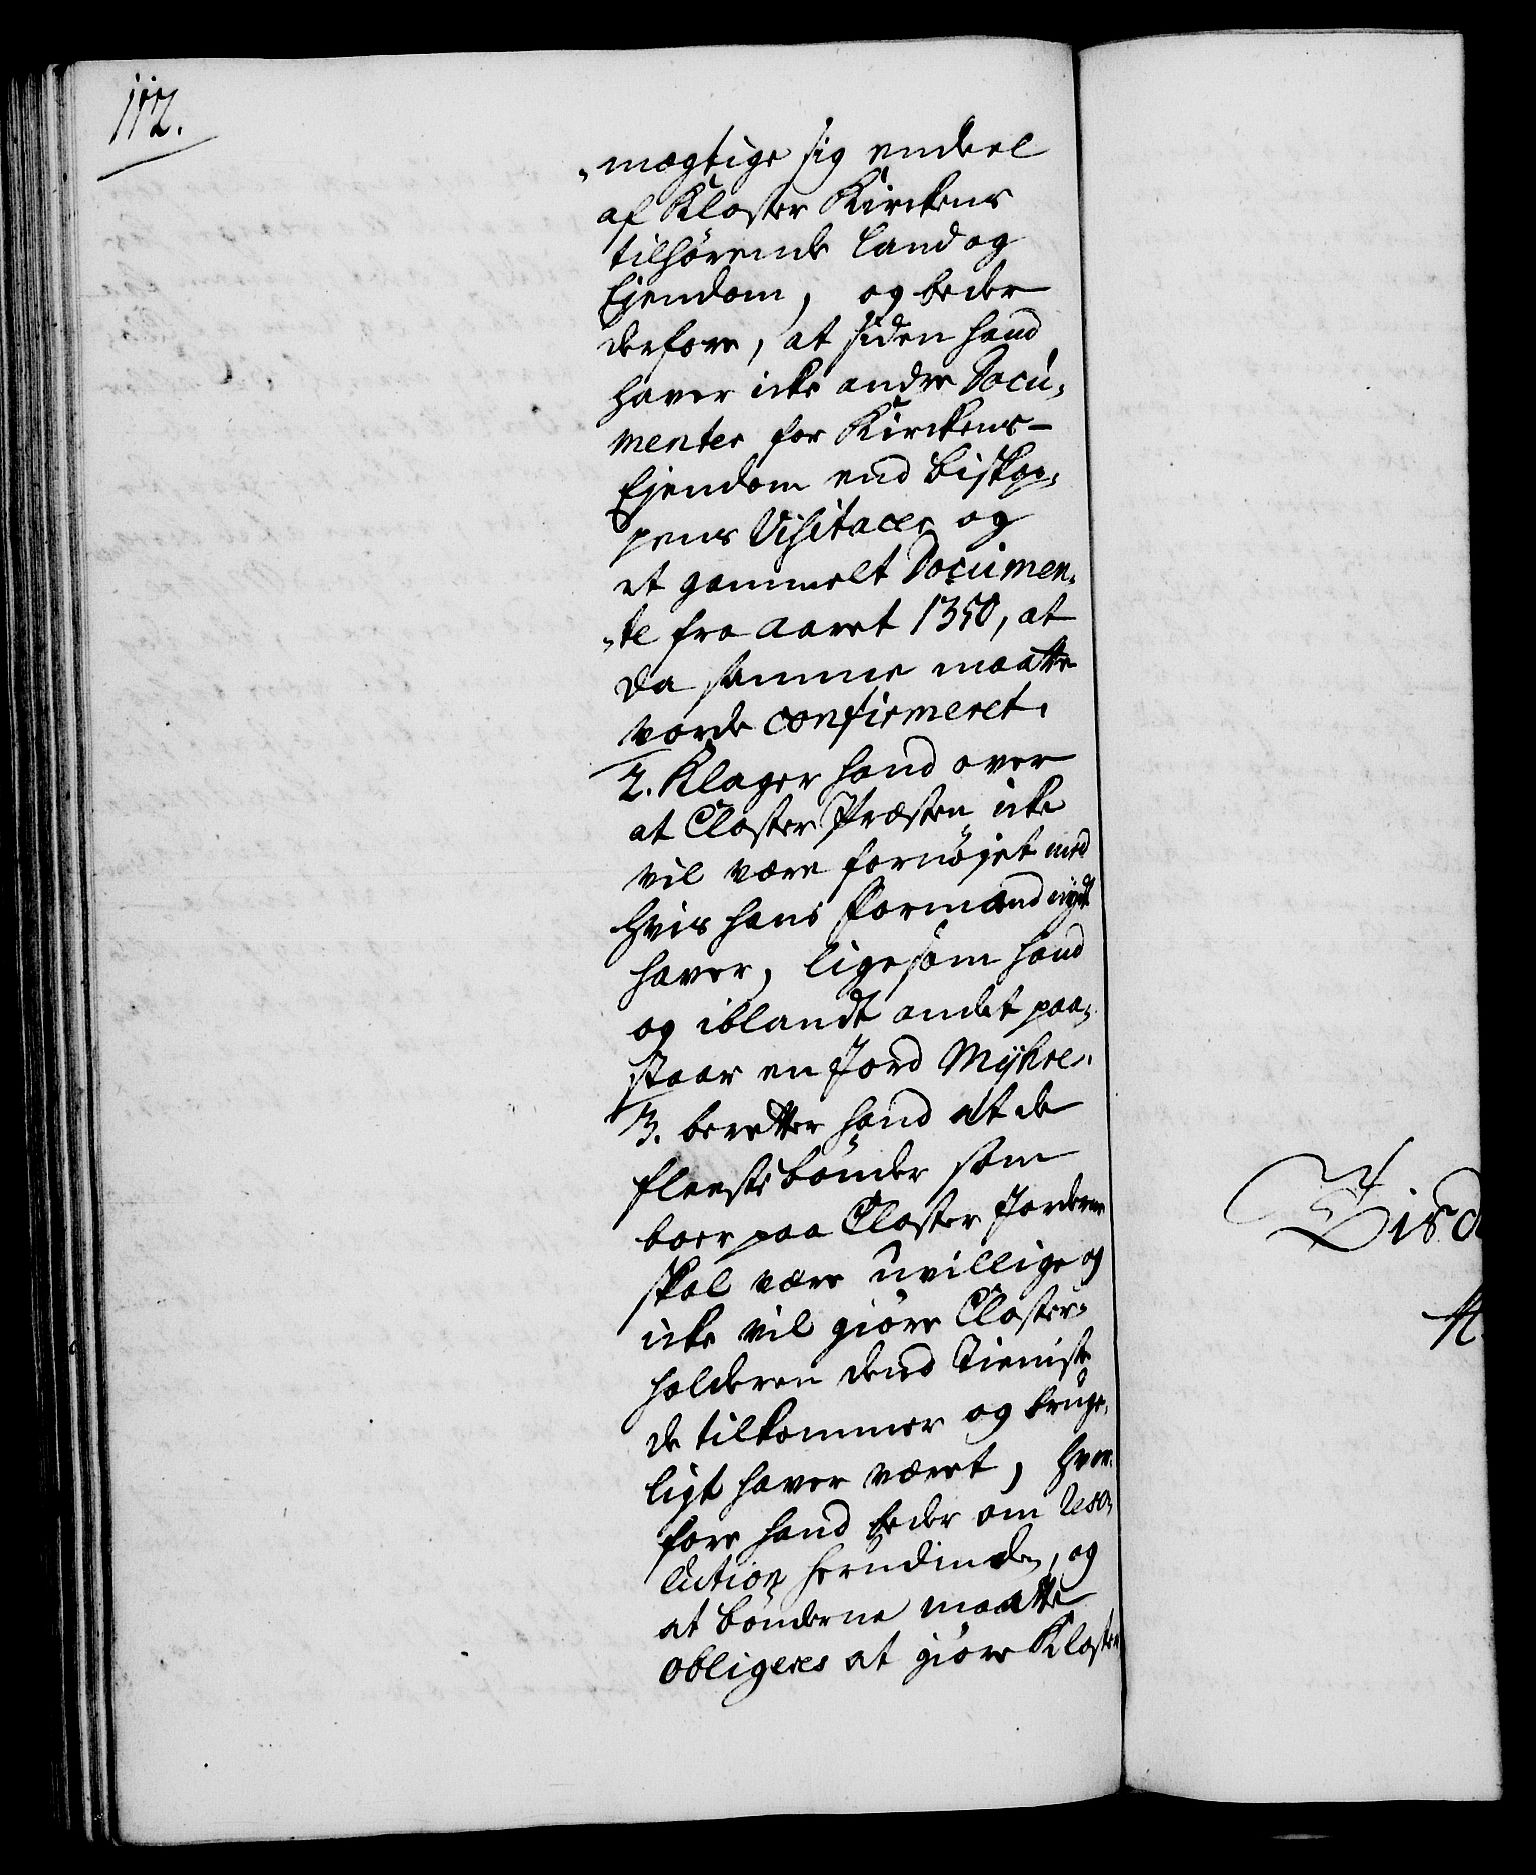 112.
„mægtige sig endeel
af Kloster Kirckens
tilhørende Land og
Ejendom, og beder
derfore, at siden hand
haver icke andre Docu„
menter for Kirckens
Ejendom end Biskop„
pens Visitacer og
et gammelt Documen„
„te fra Aaret 1350, at
da samme maatte
vorde confirmeret.
2. Klager hand over
at Closter Præsten icke
vil være fornøjet med
hvis hans Formand nydt
haver, ligesom hand
og iblandt andet paa„
staar en Jord Myhre.
3. beretter hand at de
fleeste bønder som
boer paa Closter Jorderne
skal være uvillige og
icke vil giøre Closter„
holderen dend Tieniste
de tilkommer og bruge„
ligt haver været, hvor„
fore hand beder om Reso„
lution herudinden, og
at bønderne maatte
obligeres at giøre Kloster